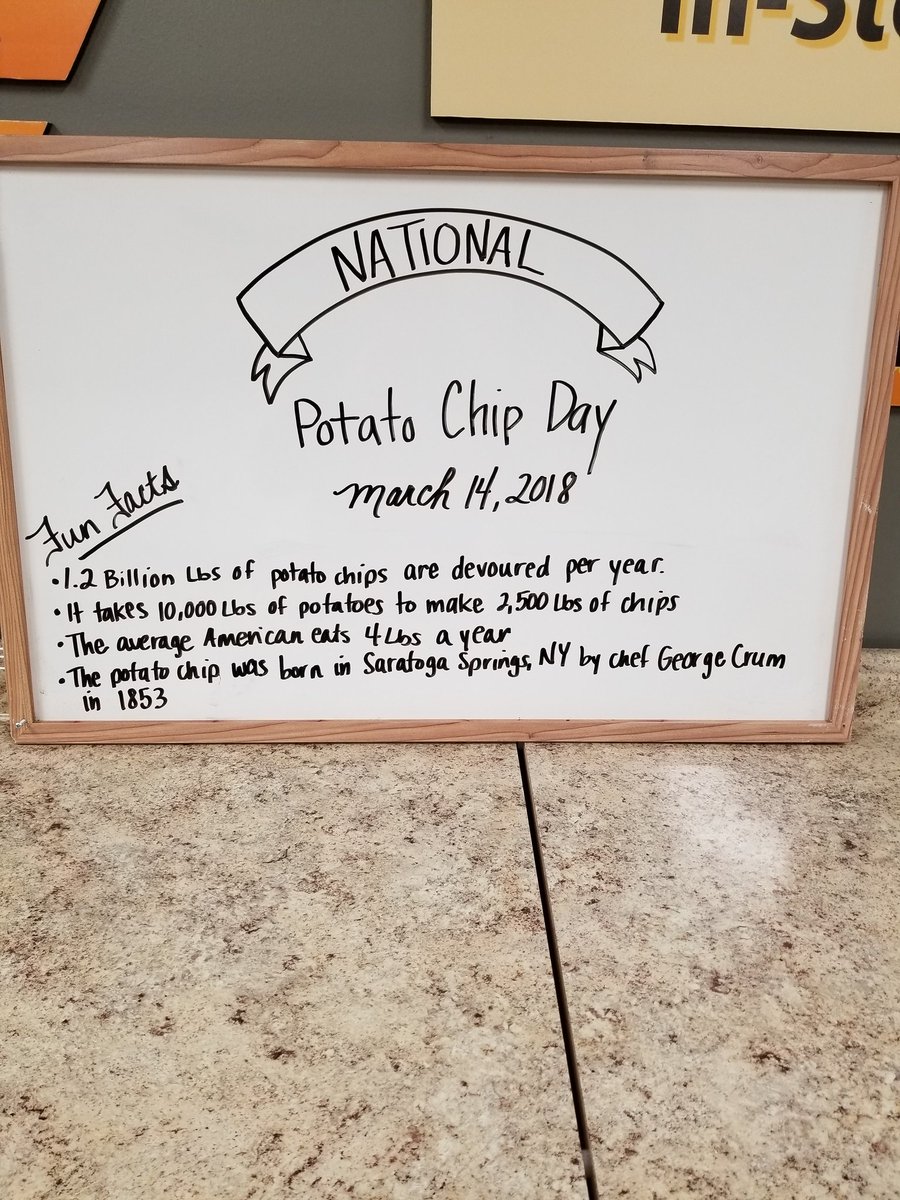 In-St
NATIONAL
Potato Chip Day
March 14, 2018
Fun Facts
•1.2 Billion Lbs of potato chips are devoured per year.
•It takes 10,000 Lbs of potatoes to make 2,500 Lbs of chips
•The average American eats 4 Lbs a year
•The potato chip was born in Saratoga Springs, NY by chef George Crum
in 1853